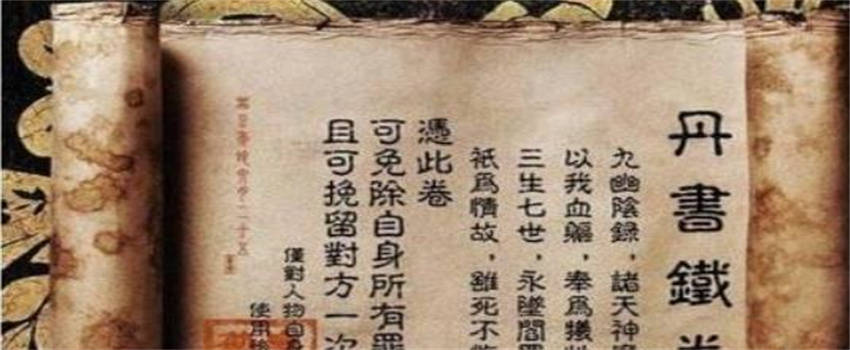 丹書鐵
九幽陰錄,諸天神
以我血軀,奉為犧
三生七世,永墜閻
祇為情故,雖死不
憑此卷
可免除自身所有罪
且可挽留對方一次
僅對人物自身
使用後